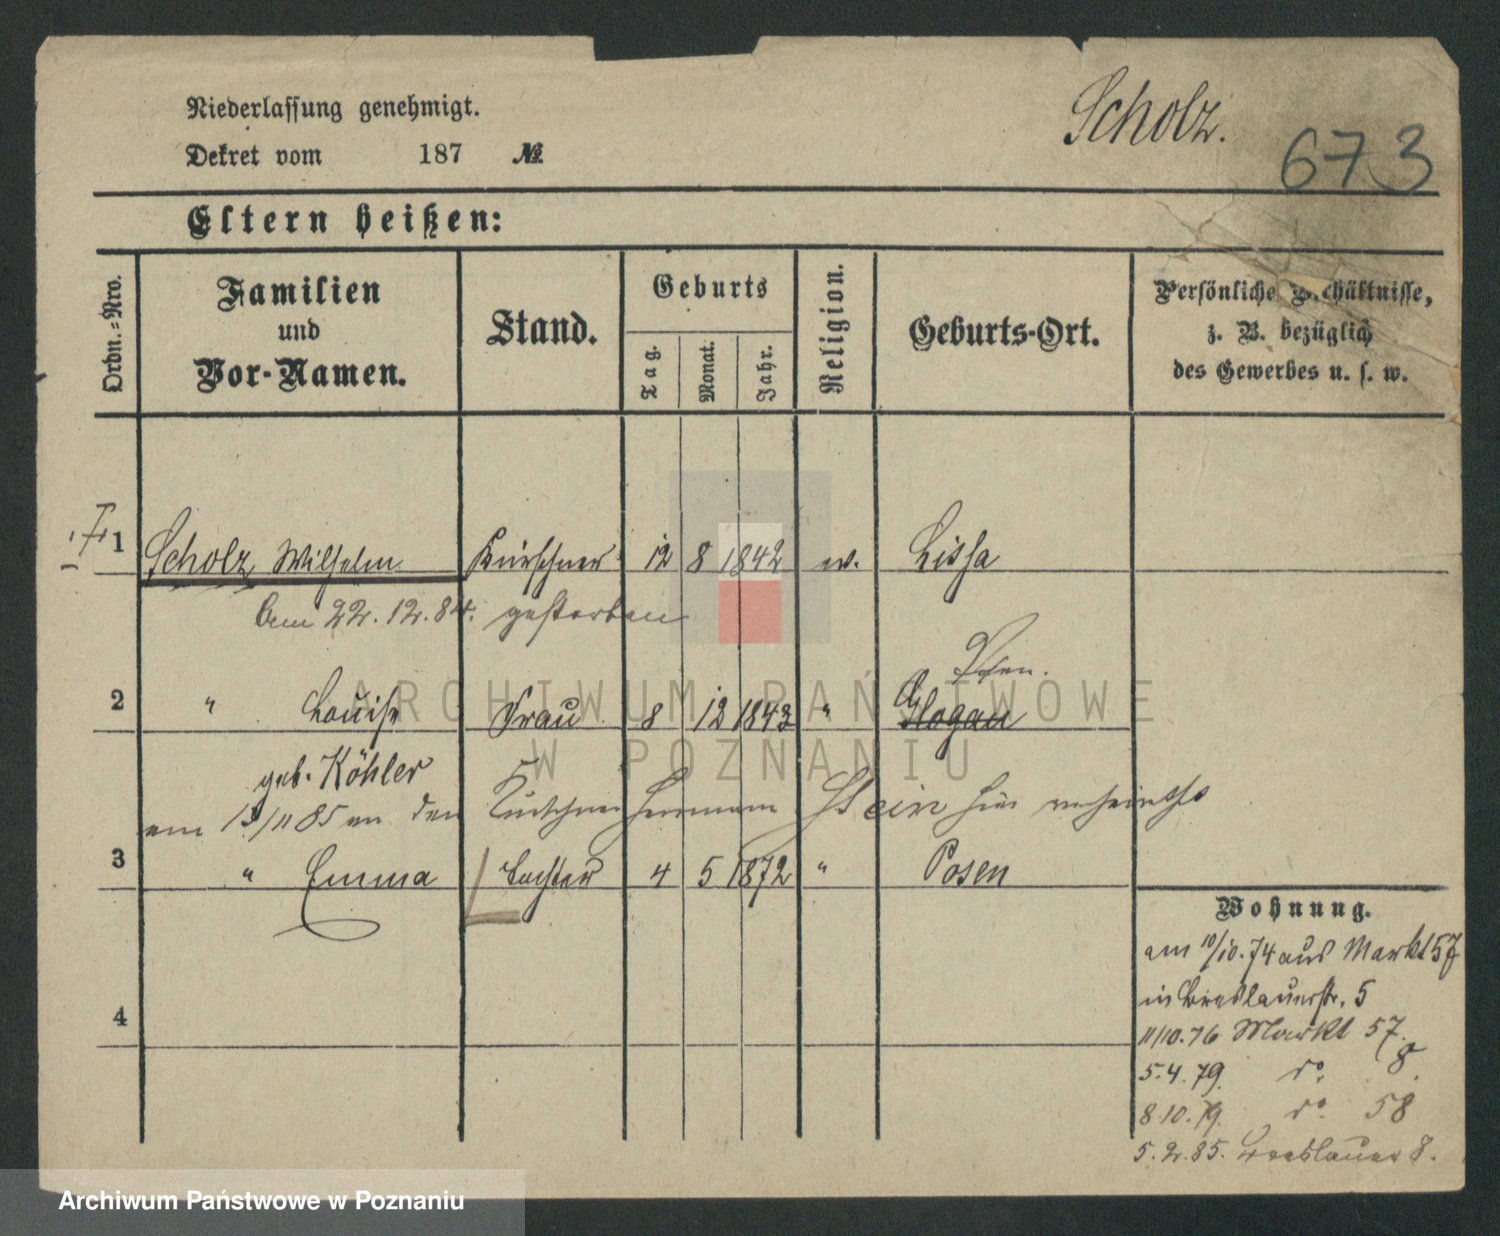 Niederlassung genehmigt.
Scholz.
673
Dekret vom 187 №
Eltern heißen:
Ordn.-Nro.
Familien und Vor-Namen.
Stand.
Geburts
Tag.
Monat.
Jahr.
Religion.
Geburts-Ort.
Persönliche Verhältnisse,
z. B. bezüglich
des Gewerbes u. s. w.
1 Scholz Wilhelm Kürschner 12 8 1842 ev. Lissa
Am 22.12.84. gestorben
Posen.
2 " Louise Frau 8 12 1843 " Glogau
geb. Köhler
am 13/11 85 an den Kürschner Hermann Stein hier verheirathet
3 " Emma Tochter 4 5 1872 " Posen
Wohnung.
am 10/10.74 aus Markt 57
in Breslauerstr. 5
4
11/10.76 Markt 57.
5.4.79. do. 8.
8.10.79. do. 58
5.2.85. Breslauer 8.
ARCHIWUM PAŃSTWOWE
W POZNANIU
Archiwum Państwowe w Poznaniu